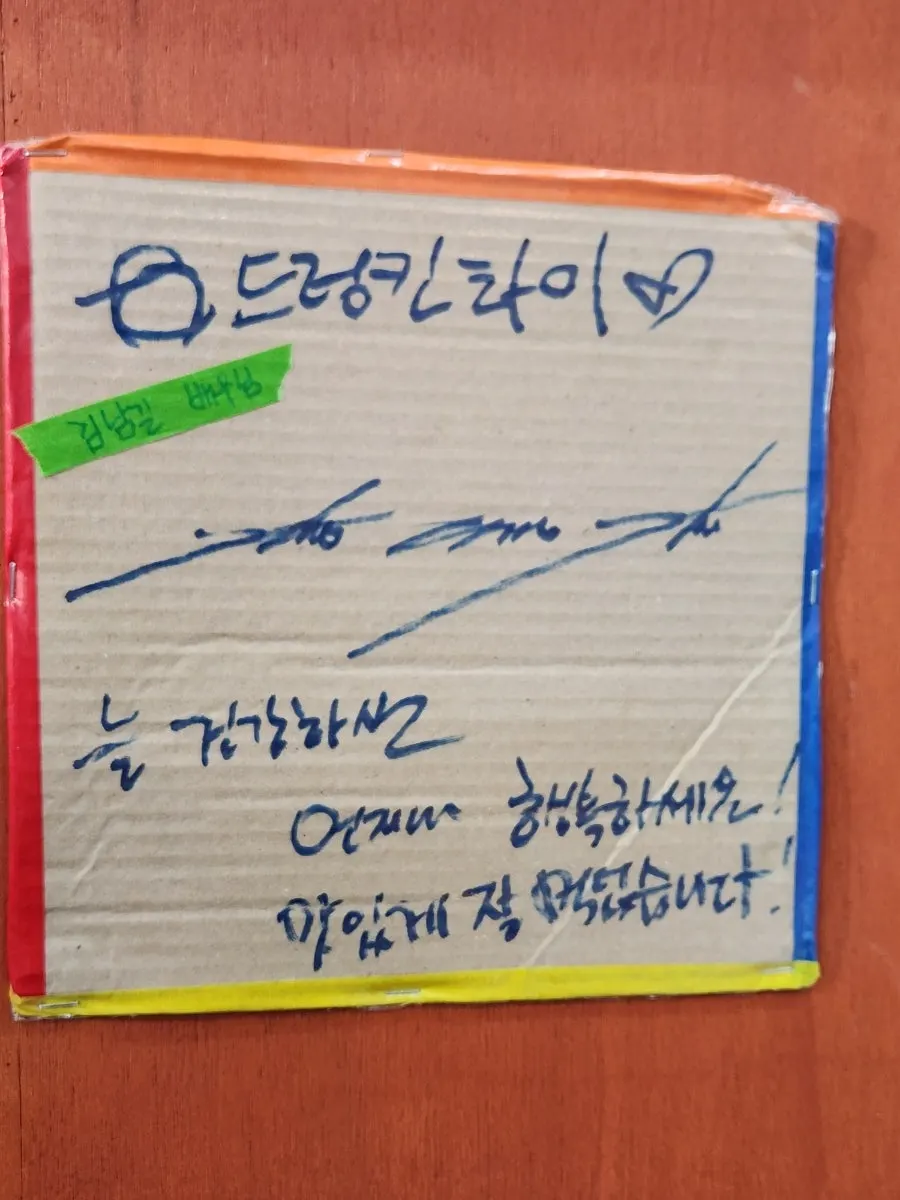 드렁킨타이
김남길 배우님
늘 건강하시고
언제나 행복하세요!
맛있게 잘 먹었습니다!